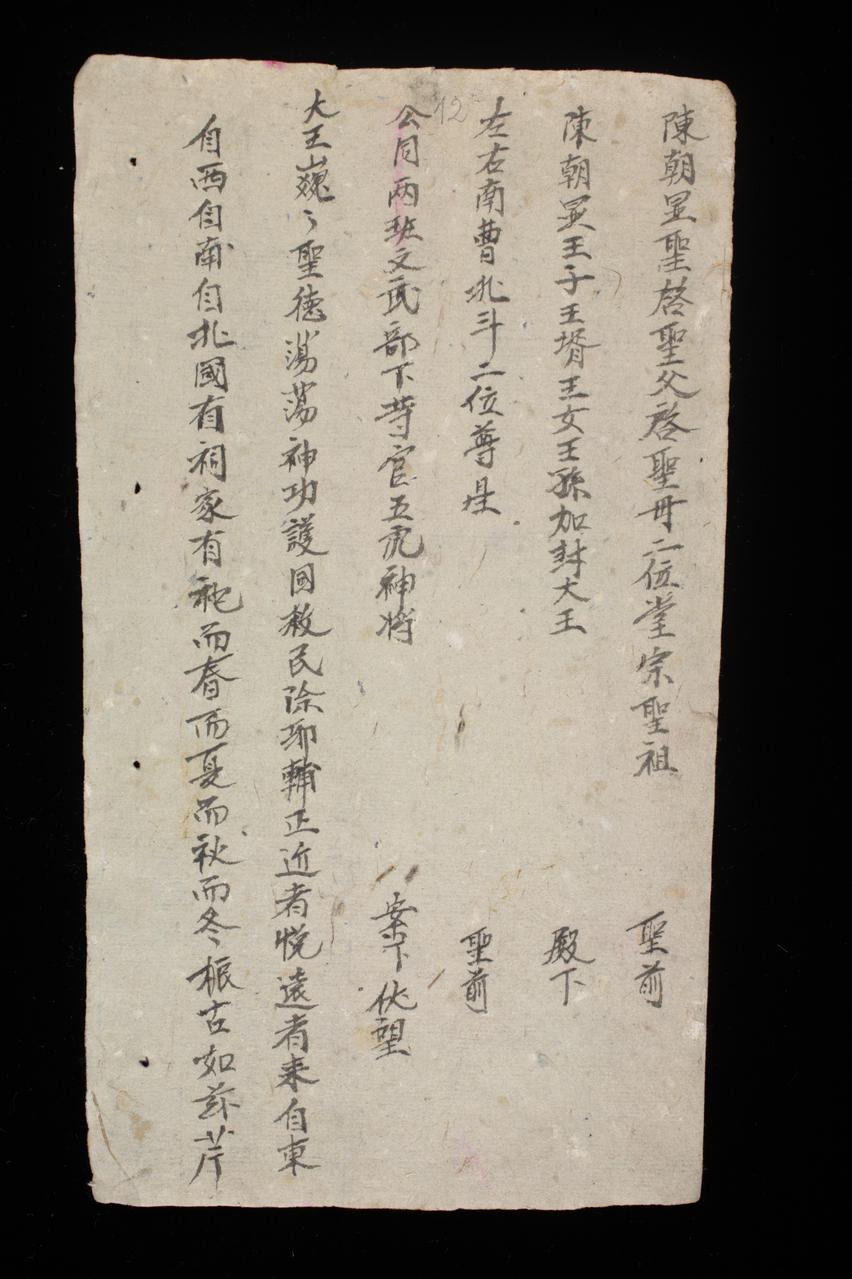 陳朝显聖啓聖父啓聖母二位堂宗聖祖 聖前
陳朝显王子王壻王女王孫加封大王 殿下
左右南曹北斗二位尊星 聖前
12
公同两班文武部下等官五虎神将 案下伏望
大王巍〻聖德蕩蕩神功護国救民除邪輔正近者悅遠者来自東
自西自南自北國有祠家有祀而春而夏而秋而冬、振古如茲芹